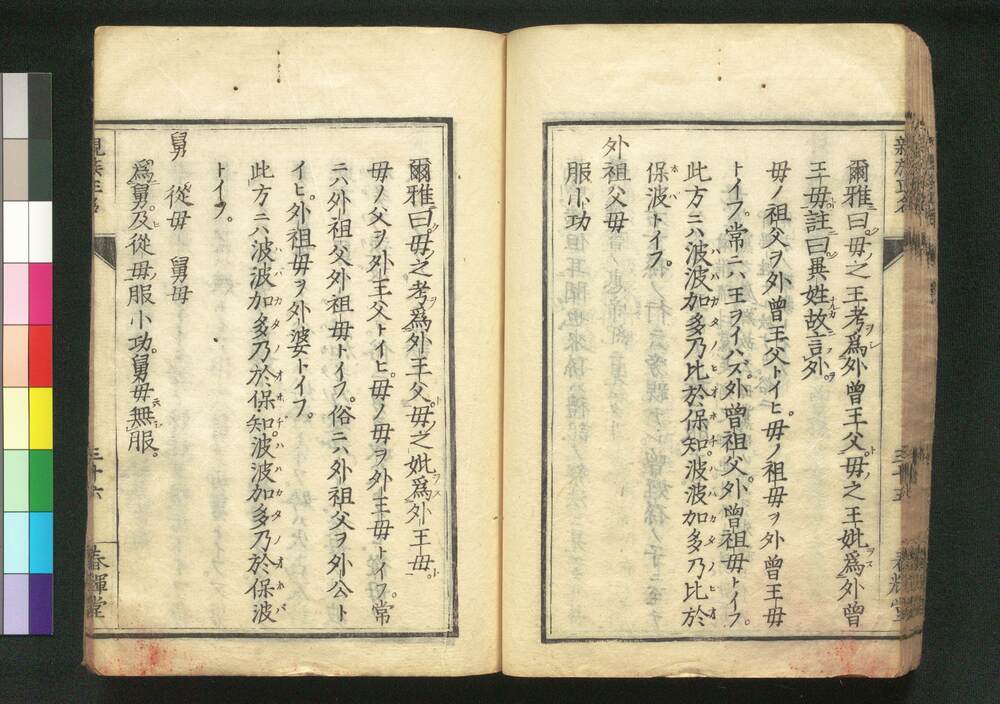 爾雅曰母之王考爲外曾王父母之王妣爲外曾
王母註曰異姓故言外
母ノ祖父ヲ外曾王父トイヒ母ノ祖母ヲ外曾王母
トイフ常ニハ王ヲイハズ外曾祖父外曾祖母トイフ
此方ニハ波波加多乃比於保知波波加多乃比於
保波トイフ
外祖父母
服小功
爾雅曰母之考爲外王父母之妣爲外王母
母ノ父ヲ外王父トイヒ母ノ母ヲ外王母トイフ常
ニハ外祖父外祖母トイフ俗ニハ外祖父ヲ外公ト
イヒ外祖母ヲ外婆トイフ
此方ニハ波波加多乃於保知波波加多乃於保波
トイフ
舅 從母 舅母
爲舅及從母服小功舅母無服
三十六
春輝堂